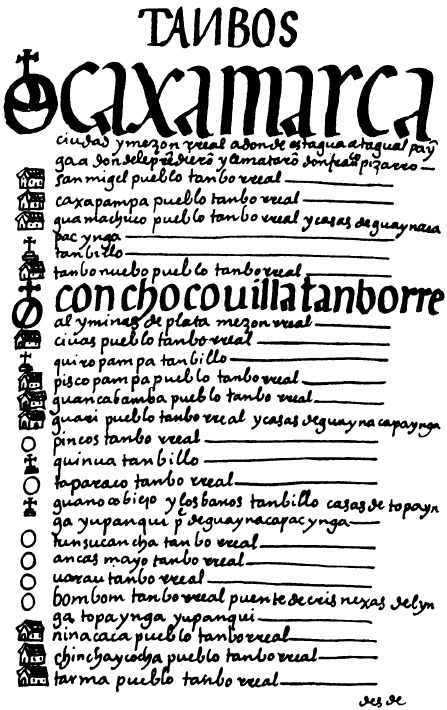 TANBOS
caxamarca
ciudad y mezon rreal adonde estaua atagualpa yn
ga a donde le prendieron y le mataron don fran pizarro
san migel pueblo tanbo rreal
caxapampa pueblo tanbo rreal
guamachuco pueblo tanbo rreal y casas de guaynaca
pac ynga
tanbillo
tanbo nuebo pueblo tanbo rreal
conchoco uilla tanborre
al y minas de plata mezon rreal
ciuas pueblo tanbo rreal
quiropampa tanbillo
piscopampa pueblo tanbo rreal
guancabamba pueblo tanbo rreal
guari pueblo tanbo rreal y casas de guaynacapaynga
pincos tanbo rreal
quinua tanbillo
taparaco tanbo rreal
guanoco biejo y los banos tanbillo casas de topayn
ga yupanqui p de guaynacapac ynga
tunsucancha tanbo rreal
ancas mayo tanbo rreal
uarau tanbo rreal
bombom tanbo rreal puente de cris nexas del yn
ga topa ynga yupanqui
ninacaca pueblo tanbo rreal
chinchaycocha pueblo tanbo rreal
tarma pueblo tanbo rreal
desde